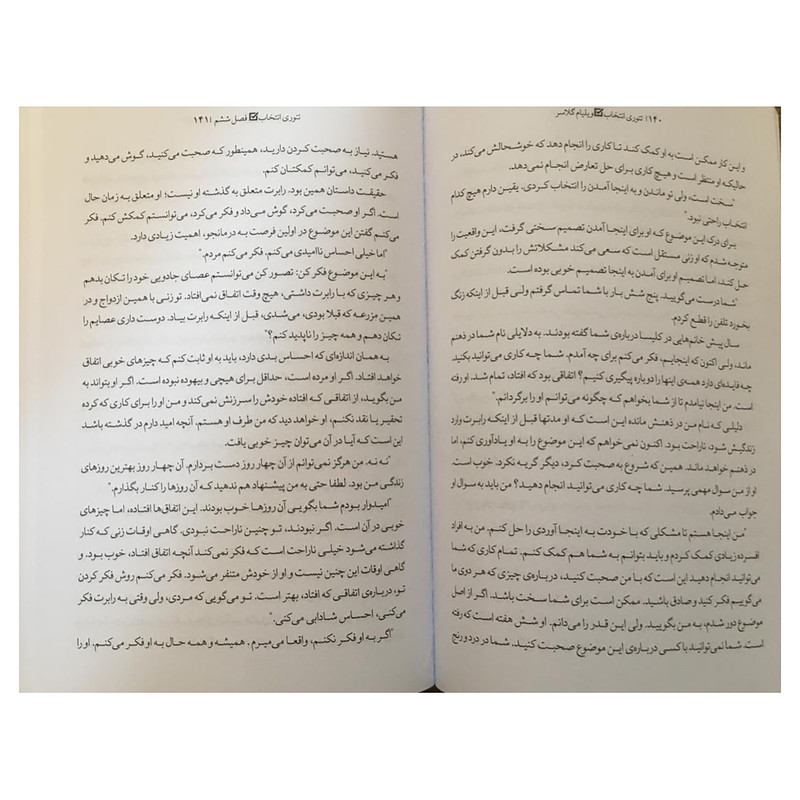 ۱۴۰ | تئوری انتخاب ☑ ویلیام گلاسر
و این کار ممکن است به او کمک کند تا کاری را انجام دهد که خوشحالش می‌کند، در
حالیکه او منتظر است و هیچ کاری برای حل تعارض انجام نمی‌دهد.
"سخت است، ولی تو ماندن و به اینجا آمدن را انتخاب کردی. یقین دارم هیچ کدام
انتخاب راحتی نبود."
برای درک این موضوع که او برای اینجا آمدن تصمیم سختی گرفت، این واقعیت را
متوجه شدم که او زنی مستقل است که سعی می‌کند مشکلاتش را بدون گرفتن کمک
حل کند، اما تصمیم او برای آمدن به اینجا تصمیم خوبی بوده است.
"شما درست می‌گویید. پنج شش بار با شما تماس گرفتم ولی قبل از اینکه زنگ
بخورد تلفن را قطع کردم.
سال پیش خانم‌هایی در کلیسا درباره‌ی شما گفته بودند. به دلایلی نام شما در ذهنم
ماند، ولی اکنون که اینجایم، فکر می‌کنم برای چه آمدم. شما چه کاری می‌توانید بکنید.
چه فایده‌ای دارد همه‌ی اینها را دوباره پیگیری کنیم؟ اتفاقی بود که افتاد، تمام شد. او رفته
است. من اینجا نیامدم تا از شما بخواهم که چگونه می‌توانم او را برگردانم."
دلیلی که نام من در ذهنش مانده این است که او مدتها قبل از اینکه رابرت وارد
زندگیش شود، ناراحت بود. اکنون نمی‌خواهم که این موضوع را به او یادآوری کنم، اما
در ذهنم خواهد ماند. همین که شروع به صحبت کرد، دیگر گریه نکرد. خوب است.
او از من سوال مهمی پرسید. شما چه کاری می‌توانید انجام دهید؟ من باید به سوال او
جواب می‌دادم.
"من اینجا هستم تا مشکلی که با خودت به اینجا آوردی را حل کنم. من به افراد
افسرده زیادی کمک کردم و باید بتوانم به شما هم کمک کنم. تمام کاری که شما
می‌توانید انجام دهید این است که با من صحبت کنید، درباره‌ی چیزی که هر دوی ما
می‌گوییم فکر کنید و صادق باشید. ممکن است برای شما سخت باشد. اگر از اصل
موضوع دور شدم، به من بگویید. ولی این قدر را می‌دانم. او شش هفته است که رفته
است. شما نمی‌توانید با کسی درباره‌ی این موضوع صحبت کنید. شما در درد و رنج
تئوری انتخاب ☑ فصل ششم | ۱۴۱
هستید. نیاز به صحبت کردن دارید، همینطور که صحبت می‌کنید، گوش می‌دهید و
فکر می‌کنید، می‌توانم کمکتان کنم.
حقیقت داستان همین بود. رابرت متعلق به گذشته او نیست؛ او متعلق به زمان حال
است. اگر او صحبت می‌کرد، گوش می‌داد و فکر می‌کرد، می‌توانستم کمکش کنم. فکر
می‌کنم گفتن این موضوع در اولین فرصت به درمانجو، اهمیت زیادی دارد.
"اما خیلی احساس ناامیدی می‌کنم. فکر می‌کنم مردم."
"به این موضوع فکر کن: تصور کن می‌توانستم عصای جادویی خود را تکان بدهم
و هر چیزی که با رابرت داشتی، هیچ وقت اتفاق نمی‌افتاد. تو زنی با همین ازدواج و در
همین مزرعه که قبلا بودی، می‌شدی، قبل از اینکه رابرت بیاد. دوست داری عصایم را
تکان دهم و همه چیز را ناپدید کنم؟"
به همان اندازه‌ای که احساس بدی دارد، باید به او ثابت کنم که چیزهای خوبی اتفاق
خواهد افتاد. اگر او مرده است، حداقل برای هیچی و بیهوده نبوده است. اگر او بتواند به
من بگوید، از اتفاقی که افتاده خودش را سرزنش نمی‌کند و من او را برای کاری که کرده
تحقیر یا نقد نکنم، او خواهد دید که من طرف او هستم. آنچه امید دارم در گذشته باشد
این است که آیا در آن می‌توان چیز خوبی یافت.
"نه نه. من هرگز نمی‌توانم از آن چهار روز دست بردارم. آن چهار روز بهترین روزهای
زندگی من بود. لطفا حتی به من پیشنهاد هم ندهید که آن روزها را کنار بگذارم."
"امیدوار بودم شما بگویی آن روزها خوب بودند. این اتفاق‌ها افتاده، اما چیزهای
خوبی در آن است. اگر نبودند، تو چنین ناراحت نبودی. گاهی اوقات زنی که کنار
گذاشته می‌شود خیلی ناراحت است که فکر نمی‌کند آنچه اتفاق افتاد، خوب بود. و
گاهی اوقات این چنین نیست و او از خودش متنفر می‌شود. فکر می‌کنم روش فکر کردن
تو، درباره‌ی اتفاقی که افتاد، بهتر است. تو می‌گویی که مردی، ولی وقتی به رابرت فکر
می‌کنی، احساس شادابی می‌کنی."
"اگر به او فکر نکنم، واقعا می‌میرم. همیشه و همه حال به او فکر می‌کنم. او را